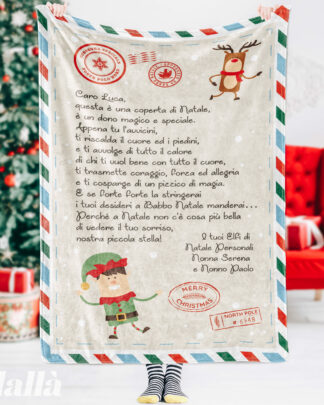 Caro Luca,
questa è una coperta di Natale,
è un dono magico e speciale.
Appena tu l'avvicini,
ti riscalda il cuore ed i piedini,
e ti avvolge di tutto il calore
di chi ti vuol bene con tutto il cuore,
ti trasmette coraggio, forza ed allegria
e ti cosparge di un pizzico di magia.
E se forte forte la stringerai
i tuoi desideri a Babbo Natale manderai...
Perché a Natale non c'è cosa più bella
di vedere il tuo sorriso,
nostra piccola stella!
I tuoi Elfi di
Natale Personali
Nonna Serena
e Nonno Paolo
MERRY
CHRISTMAS
NORTH POLE
lallà